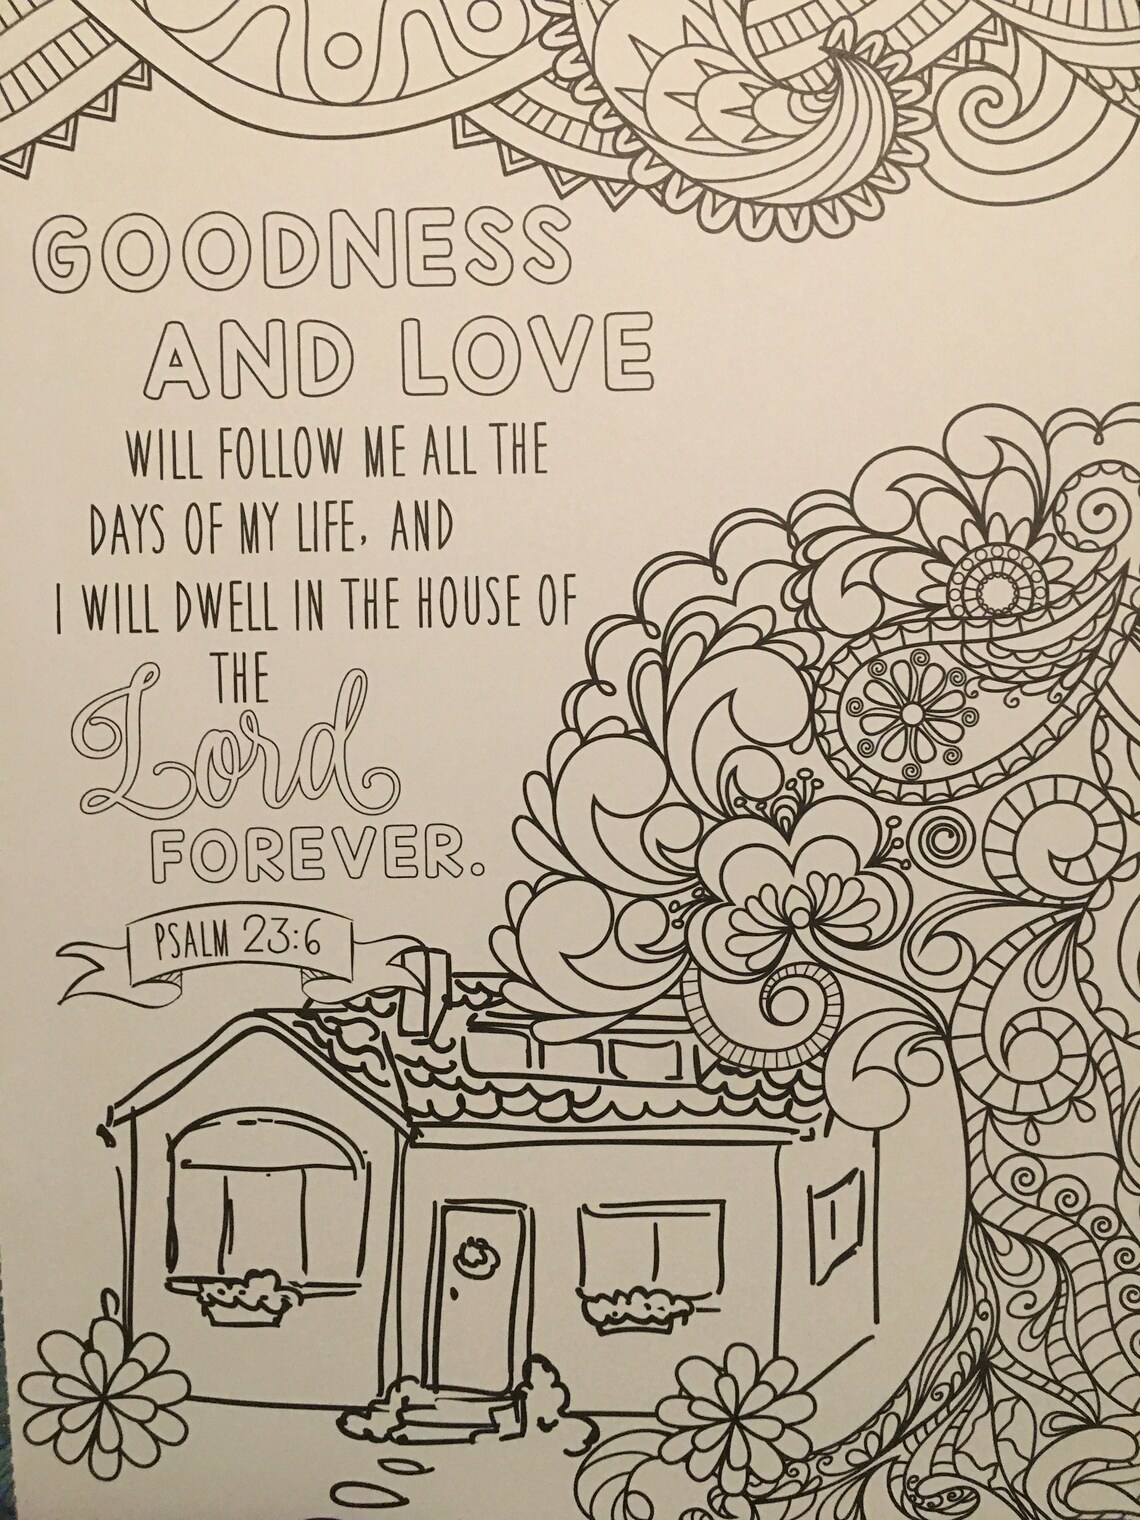 GOODNESS
AND LOVE
WILL FOLLOW ME ALL THE
DAYS OF MY LIFE, AND
I WILL DWELL IN THE HOUSE OF
THE
Lord
FOREVER.
PSALM 23:6